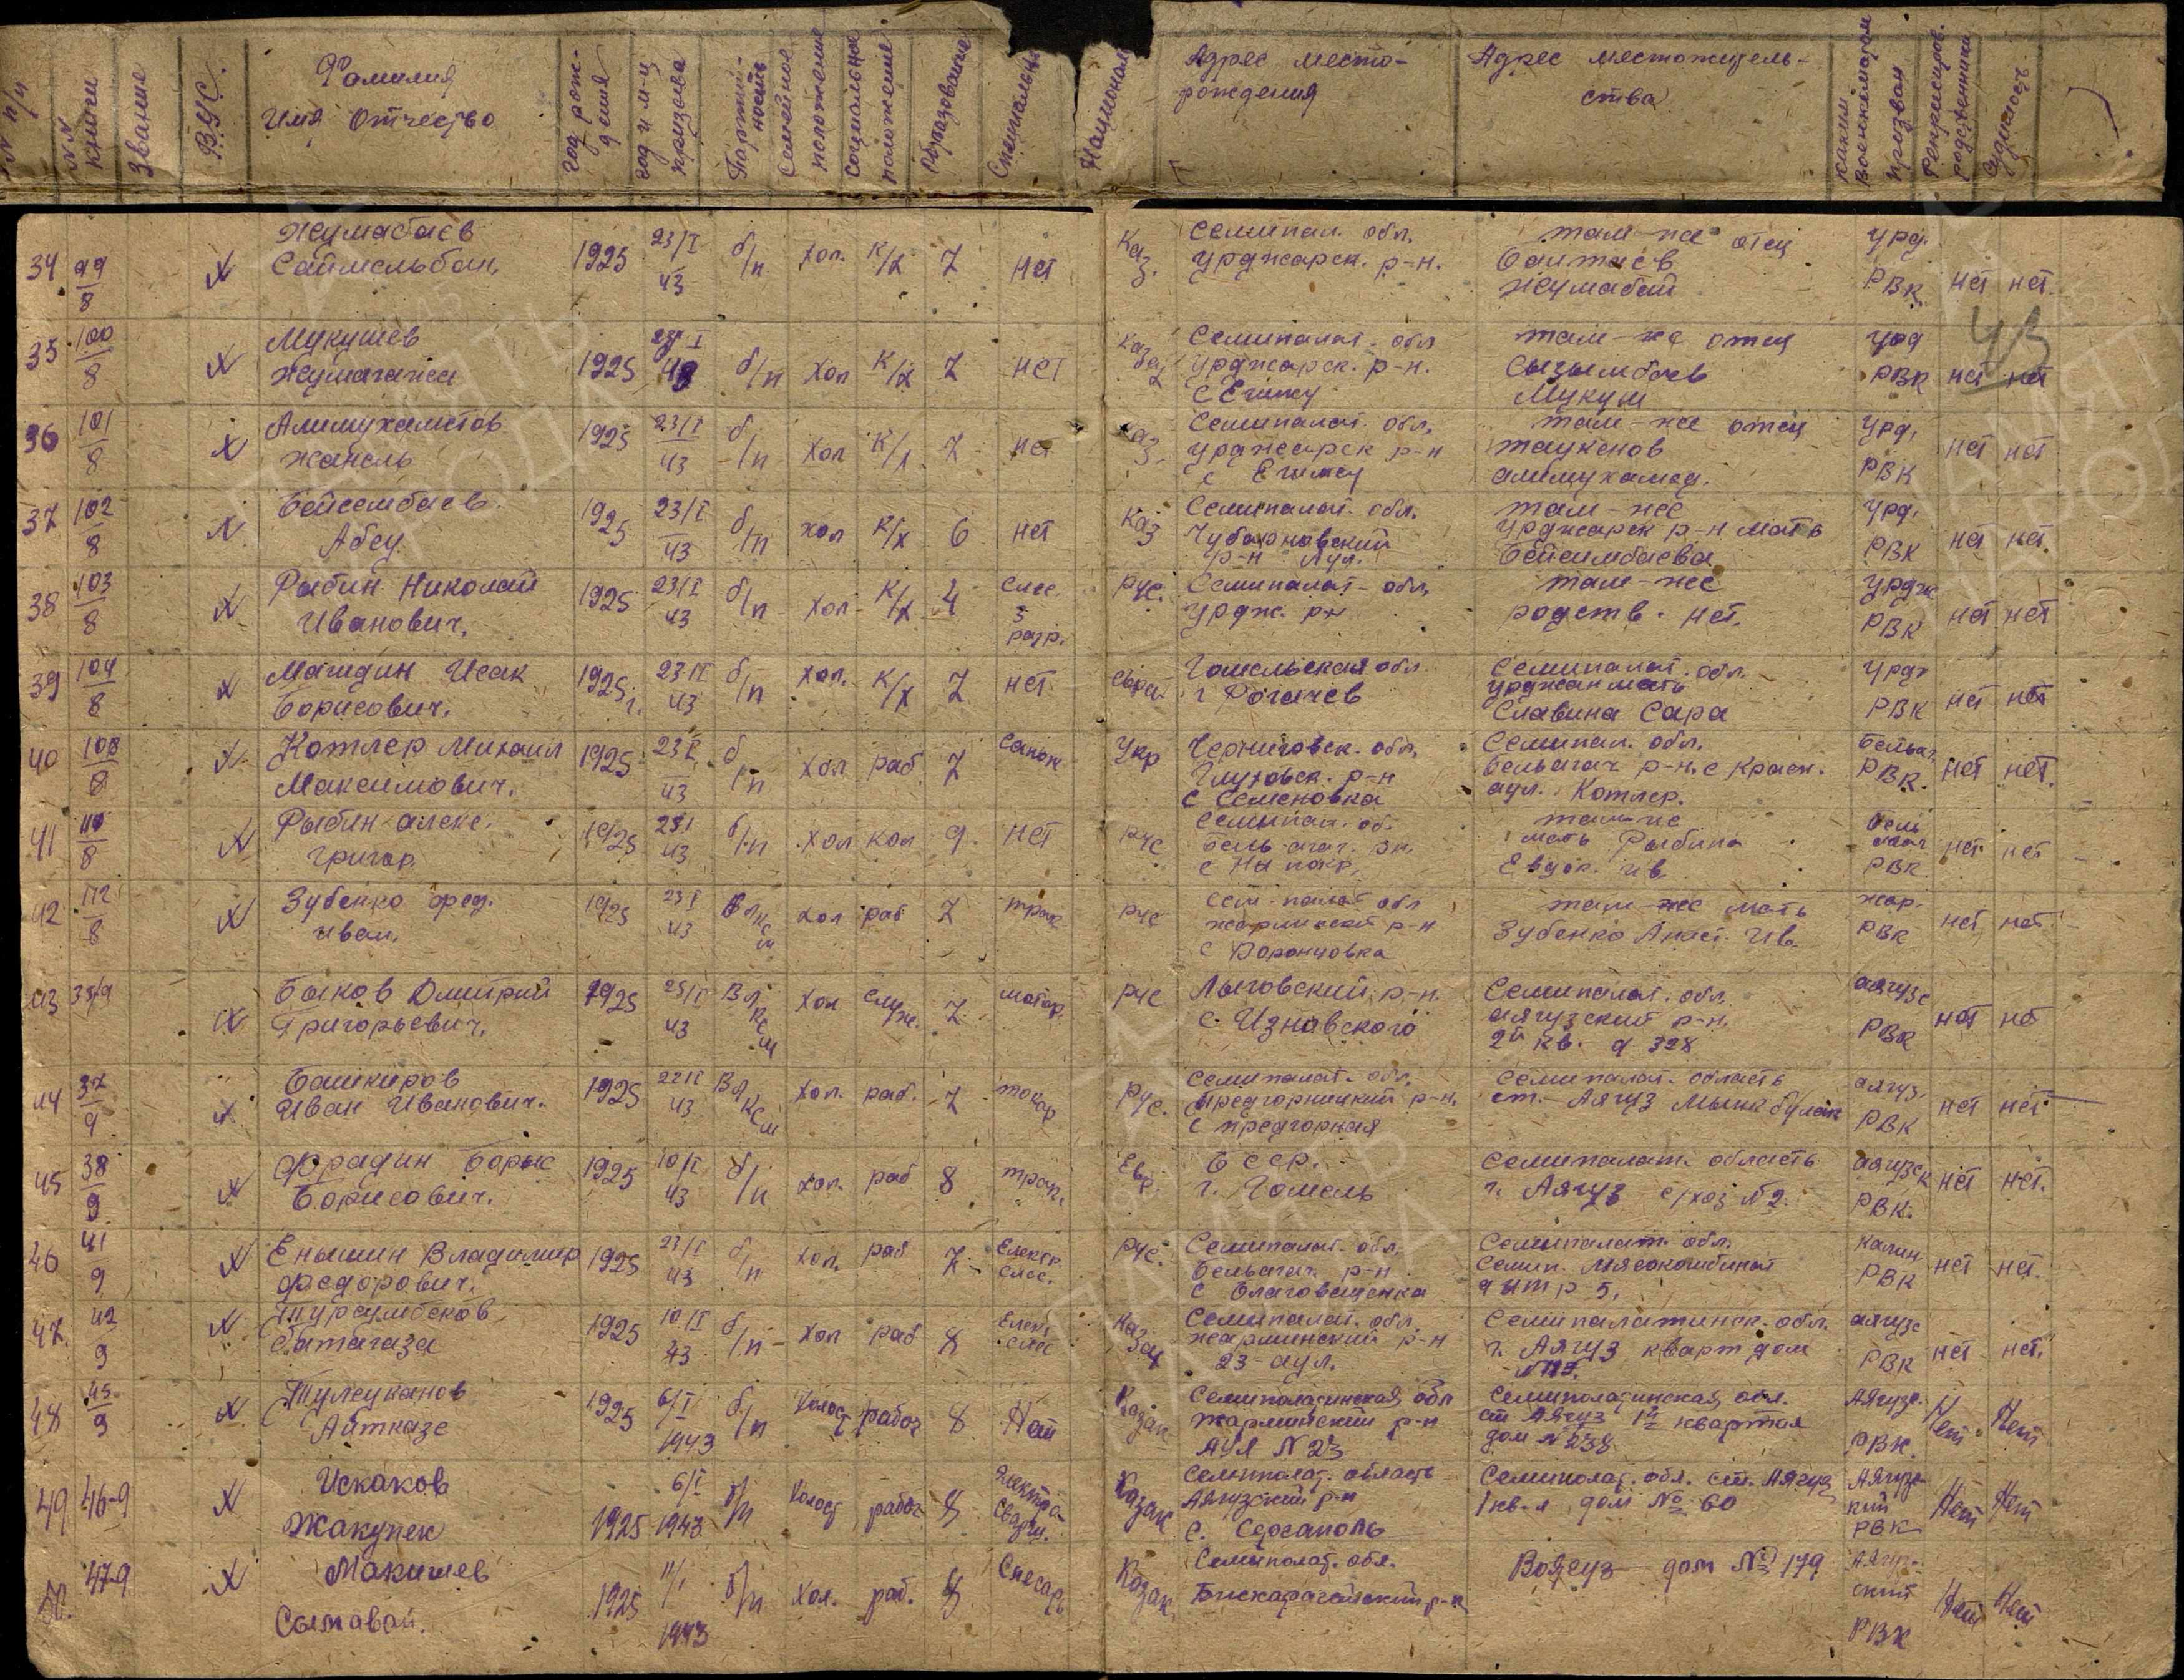 № п/п
№№ книги
Звание
ВУС.
Фамилия
Имя Отчество
год рож-
дения
год и м-ц
призыва
Партий-
ность
Семейное
положение
Социальное
положение
Образование
Специальн
Националь
Адрес место-
рождения
Адрес местожитель-
ства
каким
Военкоматом
призван
Репрессиров.
родственники
Судимость
34 99/8 Жумабаев
Саймельбан, 1925 23/I 43 б/п хол. к/х 7 нет
Каз. Семипал. обл.
Урджарск. р-н.
там-же отец
Балтаев
Жумабай
Урд.
РВК нет нет.
35 100/8 Мукушев
Жумагажи 1925 23/I 43 б/п хол к/х 7 нет
Казах Семипалат. обл
Урджарск. р-н.
с Егинсу
там-же отец
Сызымбаев
Мукуш
Урд
РВК нет нет
43
36 101/8 Алимухаметов
Жанель 1925 23/I 43 б/п хол к/х 7 нет
Каз. Семипалат. обл,
Урджарск р-н
с Егинсу
там-же отец
Таукенов
алимухамед.
Урд,
РВК нет нет
37 102/8 Бейсембаев.
Абеу 1925 23/I 43 б/п хол к/х 6 нет
Каз Семипалат. обл.
Чубартовский
р-н Аул.
там-же
Урджарск р-н мать
Бейсимбаева
Урд,
РВК нет нет.
38 103/8 Рыбин Николай
Иванович, 1925 23/I 43 б/п хол к/х 4 слес
5
разр.
Рус. Семипалат- обл,
Урдж. р-н
там-же
родств. нет.
Урдж
РВК нет нет
39 104/8 Магидин Исак
Борисович. 1925 г. 23/I 43 б/п хол. к/х 7 нет
Гомельская обл.
г Рогачев
Семипалат. обл.
Урджан мать
Славина Сара
Урдж
РВК нет нет
40 108/8 Котлер Михаил
Максимович. 1925 23/I 43 б/п хол раб 7 сапож
Укр Черниговск. обл,
Глуховск. р-н
с Семеновка
Семипал. обл.
Бельагач р-н. с Красн.
аул. Котлер.
Бельаг.
РВК. нет нет.
41 110/8 Рыбин алекс.
Григор. 1925 23/I 43 б/п хол кол 9. нет
Рус Семипал. об.
Бель-агач. рн.
с Н покр.
там-же
мать Рыбина
Евдок. ив
Бель
агач
РВК нет нет
42 112/8 Зубенко фед.
иван. 1925 23/I 43 влксм хол раб 7 трак
Рус Сем-палат обл
жарминский р-н
с Воронцовка
там-же мать
Зубенко Анаст. Ив.
жар.
РВК нет нет.
43 35/9 Быков Дмитрий
Григорьевич, 1925 23/I 43 Влксм хол служ. 7 мотор.
Рус Лыговский р-н.
с. Изновского
Семипалат. обл.
аягузский р-н.
2й кв. д 328
аягузс
РВК нет нет
44 37/9 Башкиров
Иван Иванович. 1925 22/I 43 Влксм хол. раб. 7 токар
Рус. Семипалат. обл.
Предгорницкий р-н.
с предгорная
Семипалат. область
ст. Аягуз Мынкбулак
аягуз,
РВК нет нет.
45 38/9 Фрадин Борис
Борисович. 1925 10/I 43 б/п хол. раб 8 трак.
Евр. Бсср.
г. Гомель
Семипалат. область
г. Аягуз с/хоз №2.
аягузск
РВК. нет нет.
46 41/9 Еньшин Владимир
федорович. 1925 23/I 43 б/п хол. раб 7 Електр.
слес.
Рус. Семипалат. обл.
Бельагач. р-н
с Благовещенка
Семипалат. обл.
Семип. Мясокомбинат
5,
калин
РВК нет нет.
47. 42/9 Турсумбеков
Батагаза 1925 10/I 43 б/п хол раб 8 Елект
слес
Казах Семипалат. обл.
жарминский р-н
23-аул.
Семипалатинск. обл.
г. Аягуз кварт дом
аягузс
РВК нет нет.
48 45/9 Тулеуканов
Айтказе 1925 6/I 1943 б/п Холост рабоч 8 Нет
Казак Семиполатинская обл
Жарминский р-н
Аул N 23
Семиполатинская обл.
ст Аягуз 1й квартал
дом №238
Аягузс.
РВК. Нет Нет
49 46-9 Искаков
Жакупек 1925 6/I 1943 б/п Холост рабоч 8 Электро-
сварщ.
Казак Семиполат. область
Аягузский р-н
с. Сергаполь
Семиполат. обл. ст. Аягуз
1 кв-л дом № 60
Аягузс-
кий
РВК Нет Нет
50. 47-9 Макишев
Сыматавай. 1925 11/I 1943 б/п Хол. раб. 8 Слесарь
Казак Семиполат. обл.
Бискарагайский р-н
дом № 179
Аягуз-
ский
РВК Нет Нет